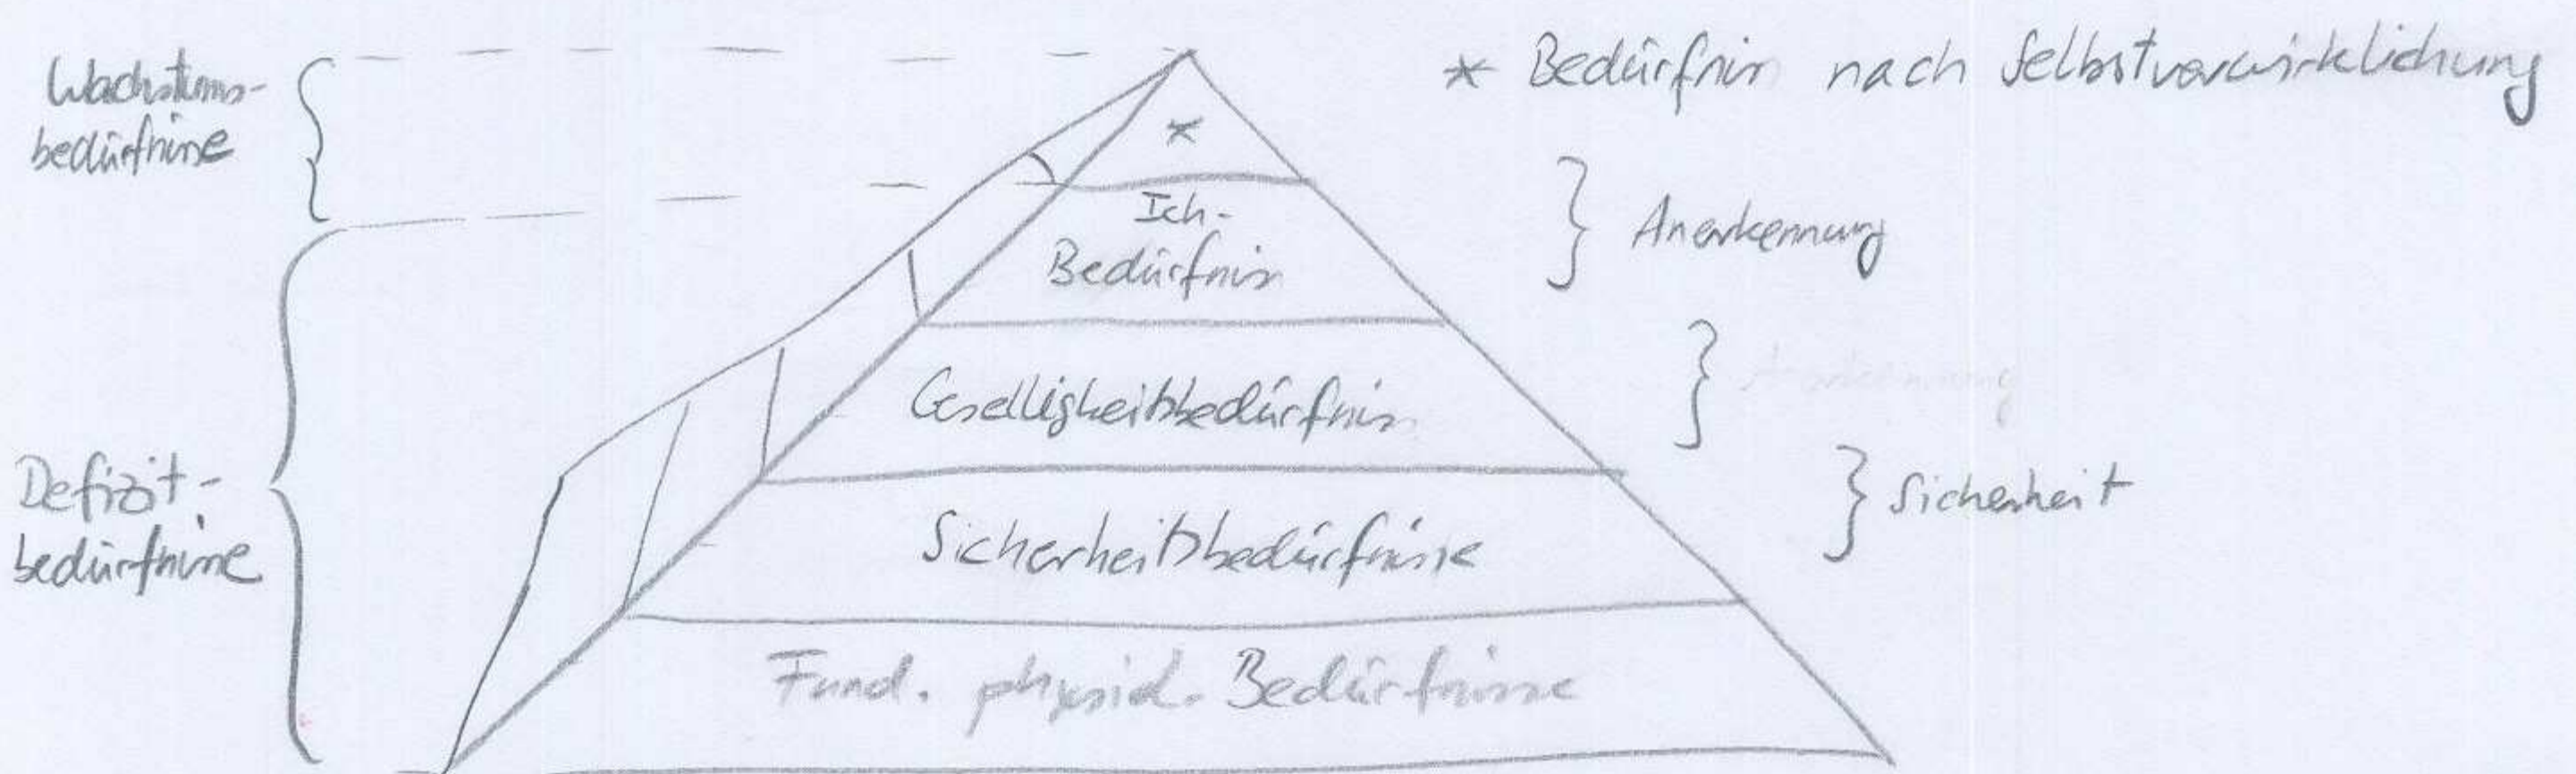 Wachstums-
bedürfnisse
* Bedürfnis nach Selbstverwirklichung
*
Ich-
Bedürfnis
} Anerkennung
Geselligkeitsbedürfnis
Defizit-
bedürfnisse
Sicherheitsbedürfnisse
} Sicherheit
Fund. physiol. Bedürfnisse